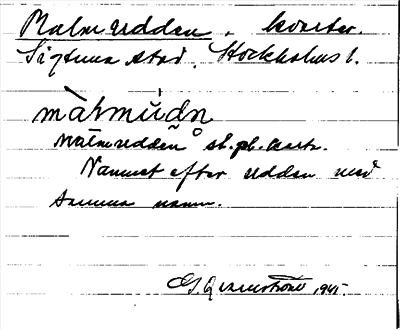 Malmudden, kvarter.
Sigtuna stad, Stockholms l.
màlmúdn
Malmudden st.pl.karta.
Namnet efter udden med
samma namn.
1945.